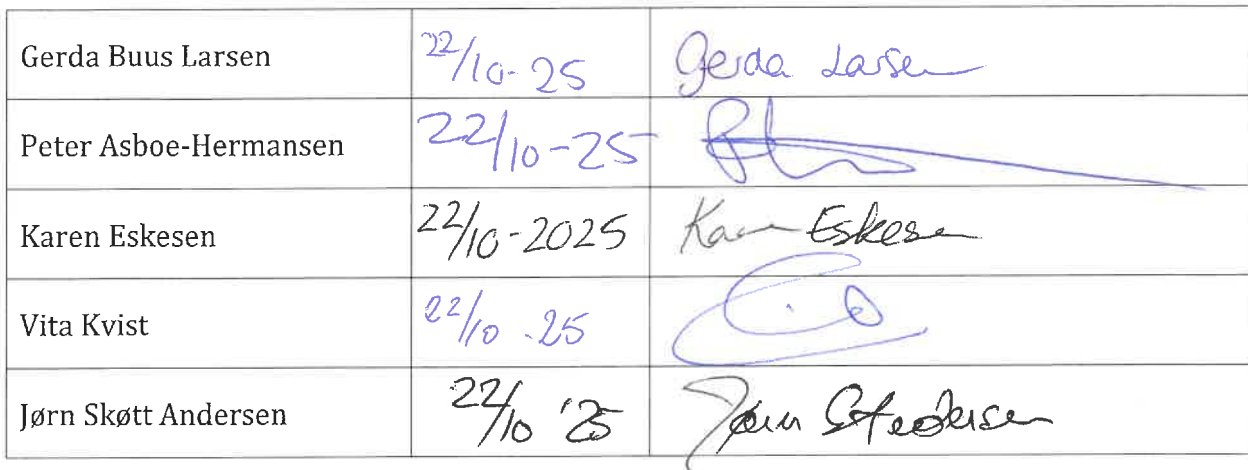 Gerda Buus Larsen 22/10-25 Gerda Larsen
Peter Asboe-Hermansen 22/10-25
Karen Eskesen 22/10-2025 Karen Eskesen
Vita Kvist 22/10-25
Jørn Skøtt Andersen 22/10 '25 Jørn